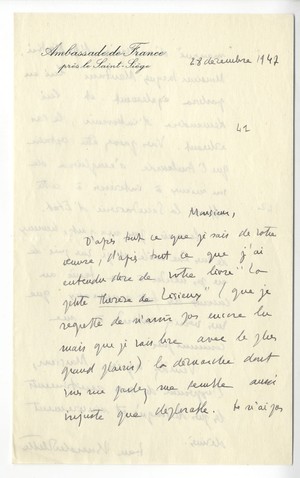 Ambassade de France
près le Saint-Siège
28 décembre 1947
42
Monsieur,
D'après tout ce que je sais de votre
œuvre, d'après tout ce que j'ai
entendu dire de votre livre "La
petite Thérèse de Lisieux" (que je
regrette de n'avoir pas encore lu
mais que je vais lire avec le plus
grand plaisir) la démarche dont
vous me parlez me semble aussi
injuste que déplorable. Je n'ai pas